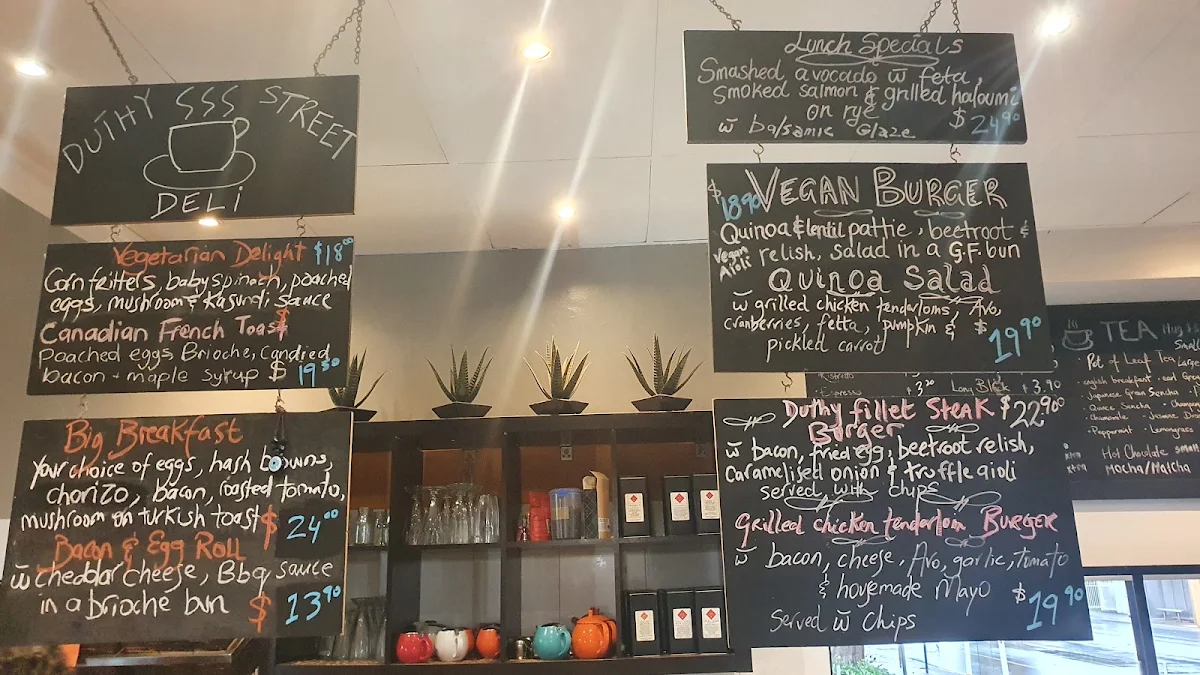 DUTHY SSS STREET
DELi
Vegetarian Delight $18⁰⁰
Corn fritters, baby spinach, poached
eggs, mushroom & Kasundi sauce
Canadian French Toast
Poached eggs, Brioche, Candied
bacon + maple syrup $19.50
Big Breakfast
Your choice of eggs, hash browns,
chorizo, bacon, roasted tomato,
mushroom on turkish toast $24⁰⁰
Bacon & Egg Roll
w̄ cheddar cheese, Bbq sauce
in a brioche bun $13⁹⁰
Lunch Specials
Smashed avocado w̄ feta,
Smoked salmon & grilled haloumi
on rye
w̄ balsamic Glaze $24⁹⁰
$18⁹⁰ VEGAN BURGER
Quinoa & lentil pattie, beetroot &
Vegan Aioli relish, salad in a G.F. bun
Quinoa Salad
w̄ grilled chicken tenderloins, Avo,
cranberries, fetta, pumpkin &
pickled carrot $19⁹⁰
Duthy fillet Steak $22⁹⁰
Burger
w̄ bacon, fried egg, beetroot relish,
caramelised onion & truffle aioli
served with chips
Grilled chicken tenderloin Burger
w̄ bacon, cheese, Avo, garlic, tomato
& housemade Mayo $19⁹⁰
Served w̄ Chips
Espresso
Long Black 3.90
TEA Mug
Small
Pot of Leaf Tea Large
english breakfast
Japanese Green Sencha
Quince Sencha
Chamomile
Peppermint · Lemongrass
Hot Chocolate small
Mocha/Matcha